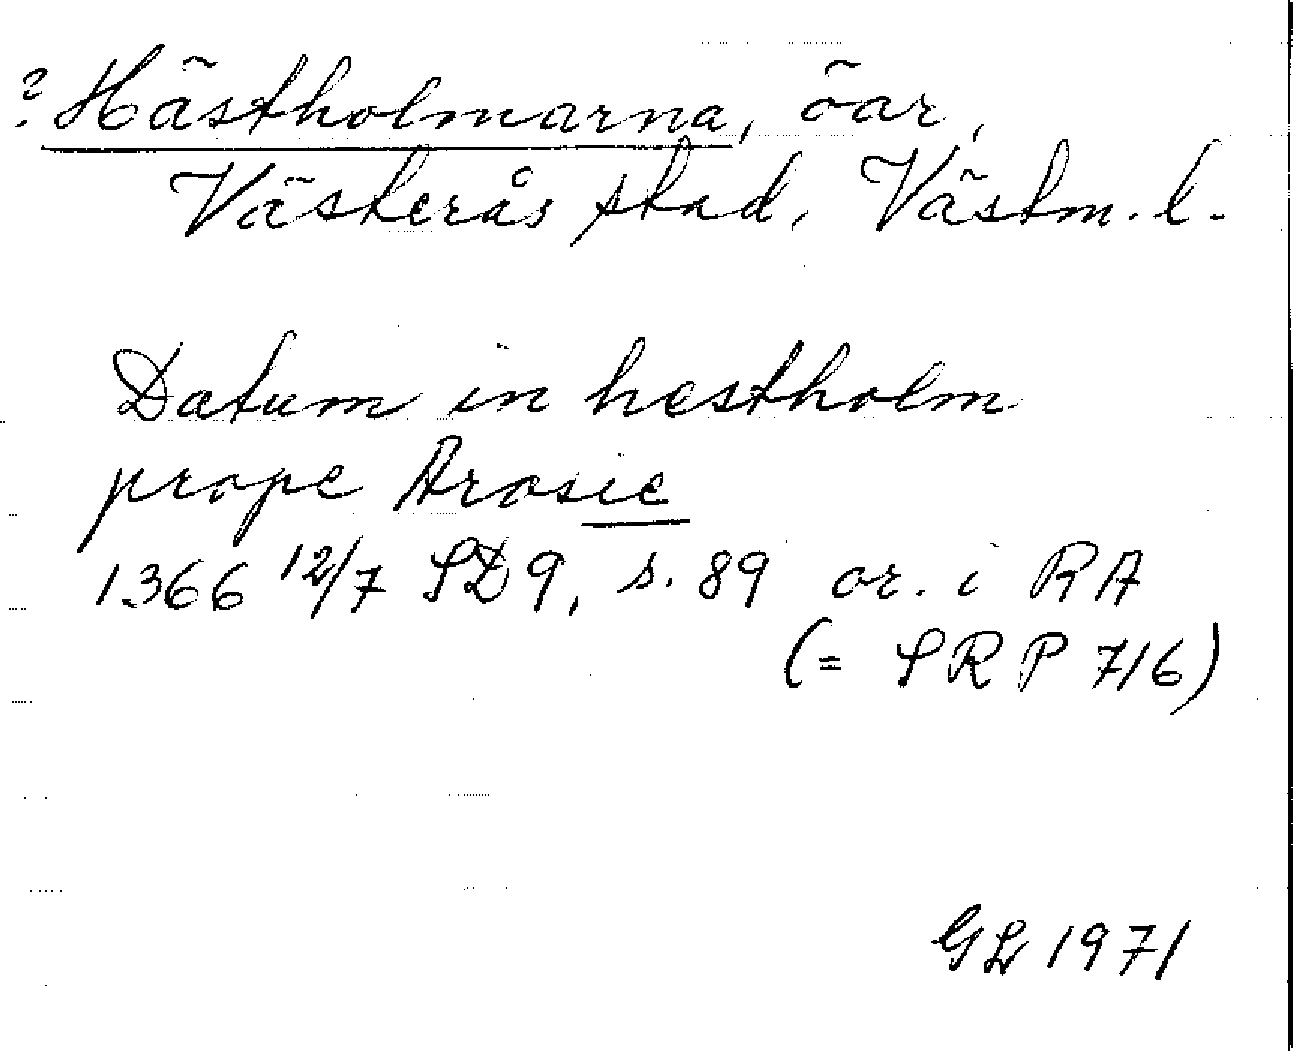 ? Hästholmarna, öar,
Västerås stad, Västm. l.
Datum in hestholm
prope Arosie
1366 12/7 SD 9, s. 89 or. i RA
(= SRP 716)
GL 1971